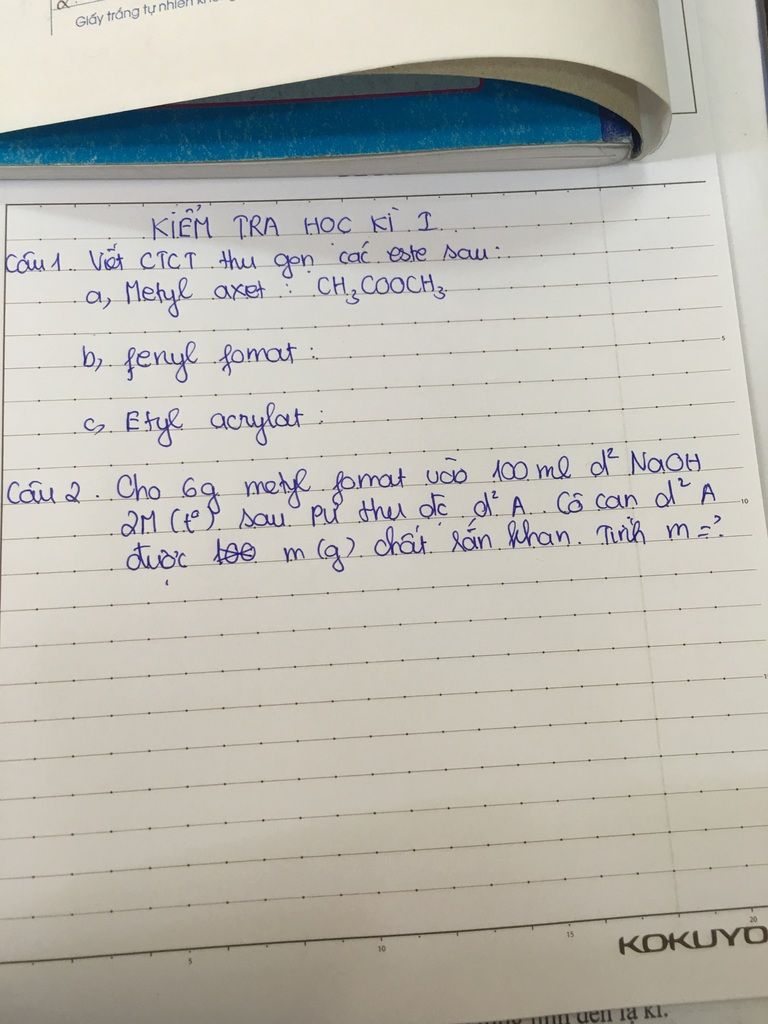 Giấy trắng tự nhiên
KIỂM TRA HỌC KÌ I
Câu 1. Viết CTCT thu gọn các este sau:
a, Metyl axet : CH₃COOCH₃
b, fenyl fomat :
c, Etyl acrylat :
Câu 2. Cho 6g metyl fomat vào 100 ml d² NaOH
2M (t°) sau pư thu đc d² A. Cô cạn d² A
được m (g) chất rắn khan. Tính m = ?
5
10
5
10
15
20
KOKUYO